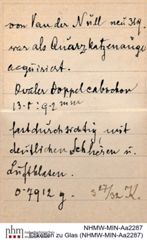 von Van der Nüll neu 319
war als Quarzkatzenauge
acquirirt.
Ovaler Doppelcabochon
13·5 : 9·2 mm
fast durchsichtig mit
deutlichen Schlieren u.
Luftblasen.
0·7912 g. 3 27/32 K.
nhm
NHMW-MIN-Aa2287
Etiketten zu Glas (NHMW-MIN-Aa2287)